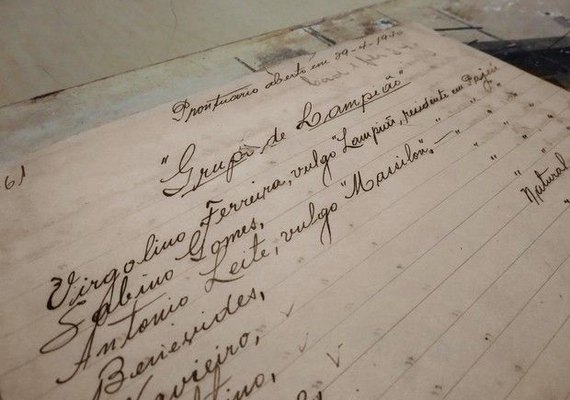 Prontuario aberto em 29-4-1930
61
"Grupo de Lampeão"
Virgolino Ferreira, vulgo "Lampeão", residente em Pajeú
Sabino Gomes,
Antonio Leite, vulgo "Massilon". — " " "
Benevides, Natural
Xavieiro,